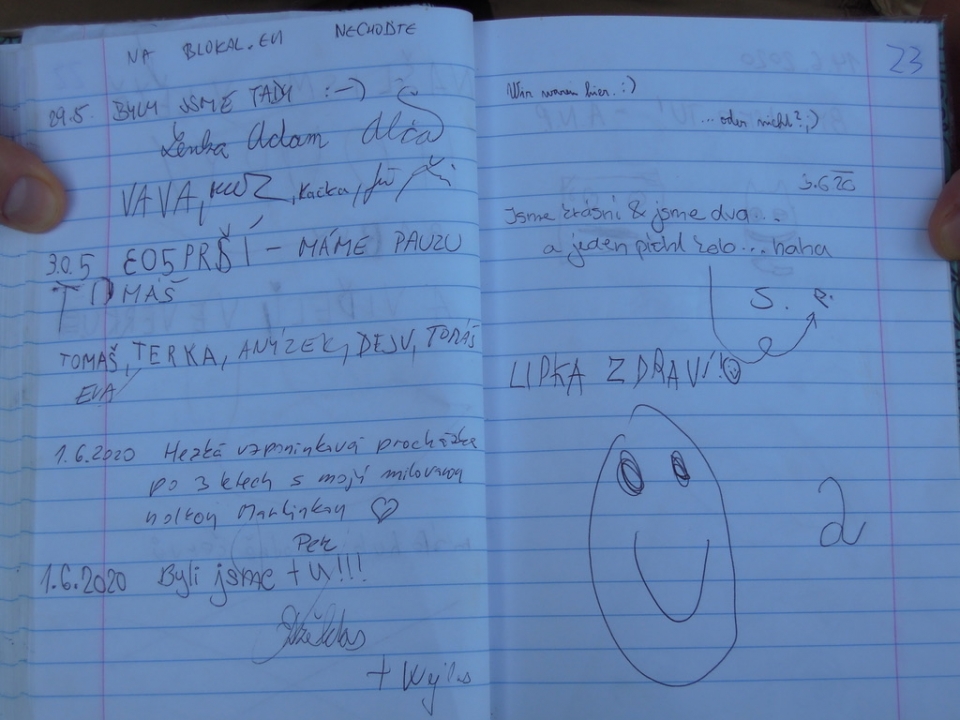 NA BLOKAL.EU NECHOĎTE
29.5. BYLY JSME TADY :-)
Lenka Adam
VAVA, KUZ, Kačka,
30.5 EO5 PRŠÍ - MÁME PAUZU
TOMÁŠ
TOMAŠ, TERKA, ANÝZEK, DEJV, TOMÁŠ
EVA
1.6.2020 Hezká vzpomínková procházka
po 3 letech s mojí milovanou
holkou Martinkou ♡
Petr
1.6.2020 Byli jsme tu!!!
+ Wyles
23
Wir waren hier. :)
...oder nicht? ;)
3.6 20
Jsme krásní & jsme dva...
a jeden píchl kolo... haha
S. P.
LIPKA ZDRAVÍ!
2